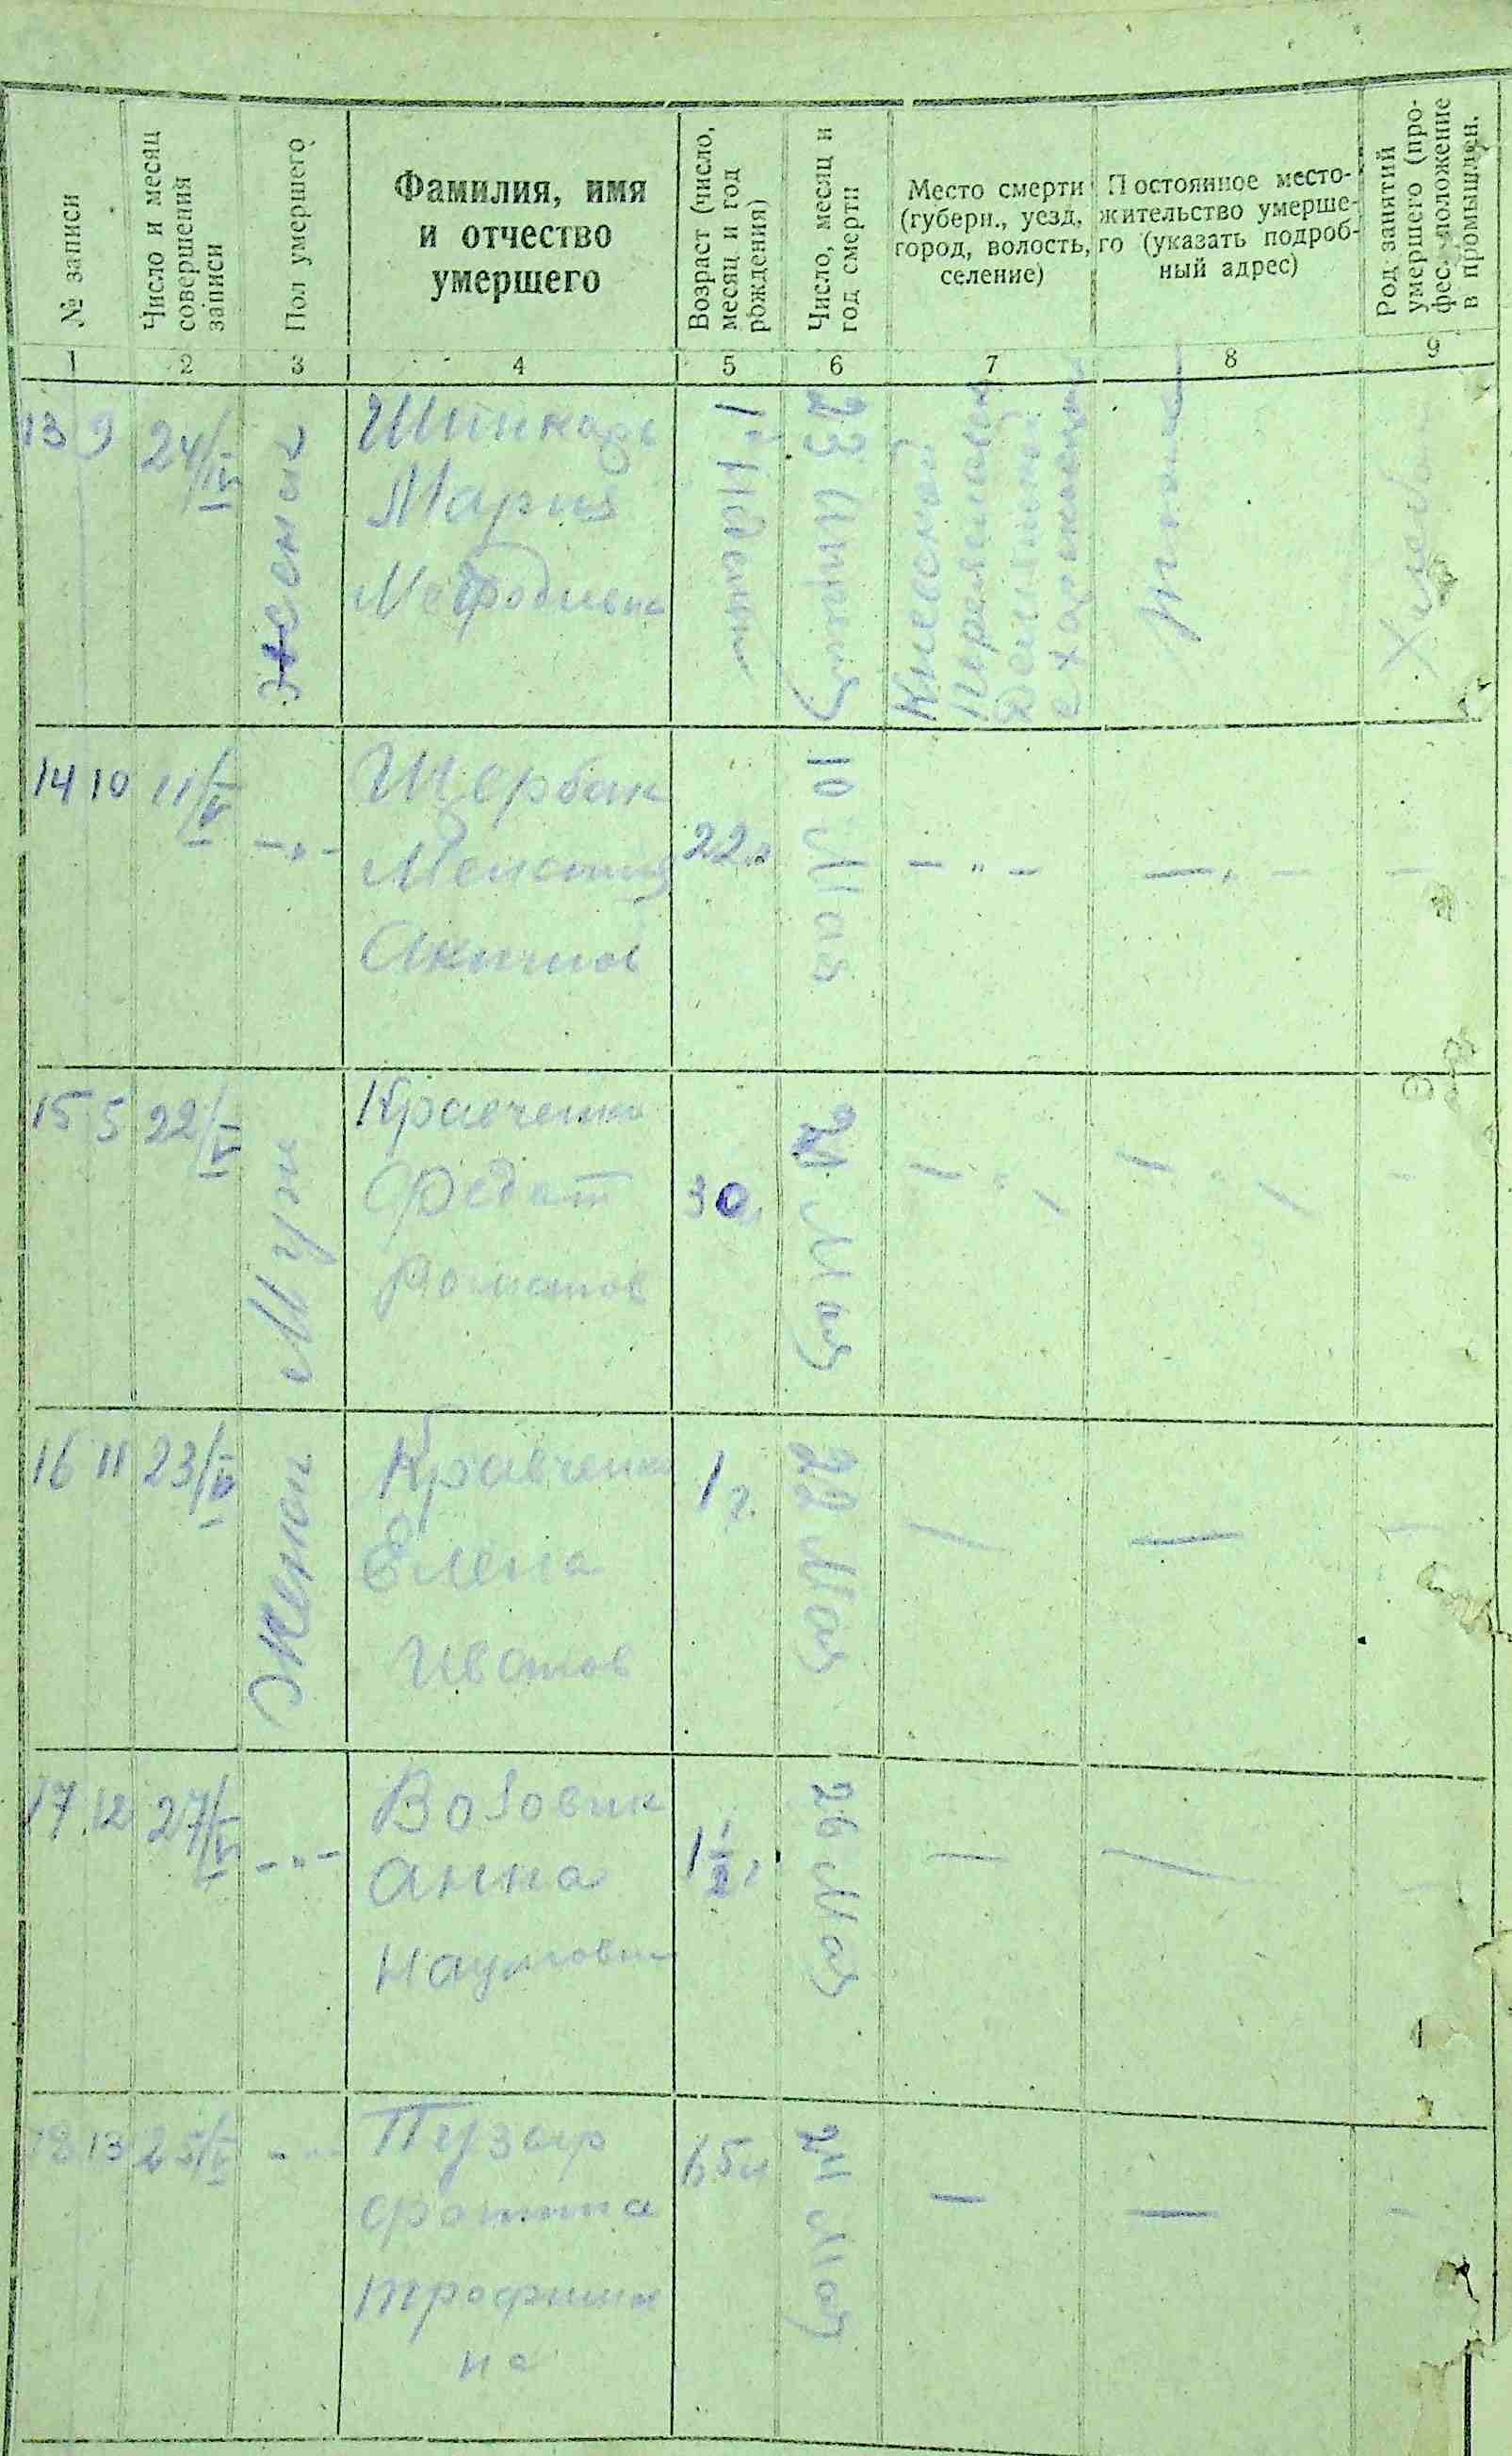 № записи
Число и месяц
совершения
записи
Пол умершего
Фамилия, имя
и отчество
умершего
Возраст (число,
месяц и год
рождения)
Число, месяц и
год смерти
Место смерти
(губерн., уезд,
город, волость,
селение)
Постоянное место-
жительство умерше-
го (указать подроб-
ный адрес)
Род занятий
умершего (про-
фес. положение
в промышлен.
1 2 3 4 5 6 7 8 9
13 9
24/IV
женск
Шинкарь
Мария
23 Априля
Киевской
14 10
11/V
— „ —
Щербак
Акимов
22 л
10 Мая
— „ —
— „ —
—
15 5
22/V
Муж
Кравченко
Федот
Романов
30 л
21 Мая
— „ —
— „ —
—
16 11
23/V
Женск
Кравченко
Елена
Иванов
1 г.
22 Мая
—
—
—
17 12
27/V
— „ —
Возовик
Анна
Наумовн
1 1/2 г
26 Мая
—
—
—
18 13
25/V
— „ —
Пузыр
Трофимов
на
65 л
24 Мая
—
—
—